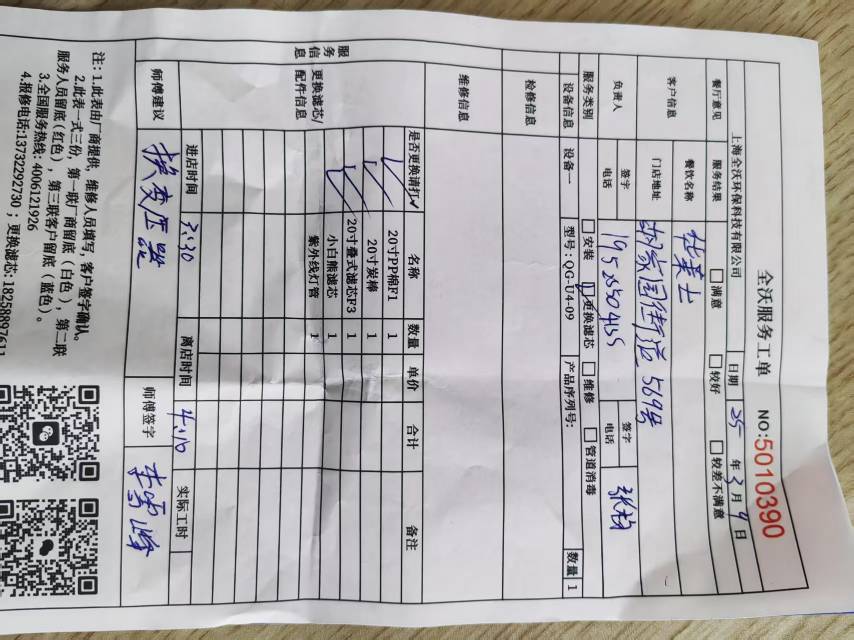 全沃服务工单 NO:5010390
上海全沃环保科技有限公司 日期 25年3月9日
餐厅意见 服务结果 □满意 □较好 □较差不满意
客户信息 餐饮名称 华莱士
门店地址 569号
负责人 签字 签字
电话 电话
服务类别 □安装 □更换滤芯 □维修 □管道消毒
设备信息 设备一 型号:OG-U4-09 产品序列号: 数量 1
检修信息
维修信息
服务信息
更换滤芯/配件信息 是否更换请打✓ 名称 数量 单价 合计 备注
✓ 20寸PP棉F1 1
✓ 20寸炭棒 1
✓ 20寸叠式滤芯F3 1
✓ 小白熊滤芯 1
紫外线灯管 1
进店时间 3:30 离店时间 4:10 实际工时
师傅建议 换变压器 师傅签字
注:1.此表由厂商提供,维修人员填写,客户签字确认。
2.此表一式三份,第一联厂商留底(白色),第二联
服务人员留底(红色),第三联客户留底(蓝色)。
3.全国服务热线:4006121926
4.报修电话:13732292730;更换滤芯:18258897611